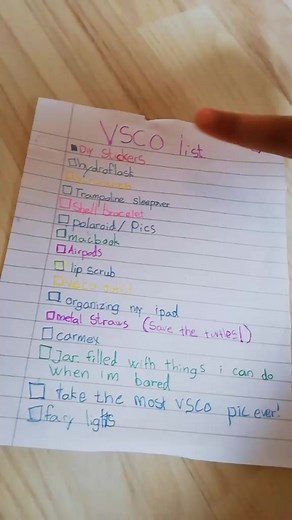 VSCO list
DIY stickers
hydroflask
Trampoline sleepover
Shell bracelet
polaroid/Pics
macbook
Airpods
lip scrub
organizing my ipad
metal straws (save the turtles!)
carmex
Jar filled with things i can do
when im bored
take the most VSCO pic ever!
fairy lghts